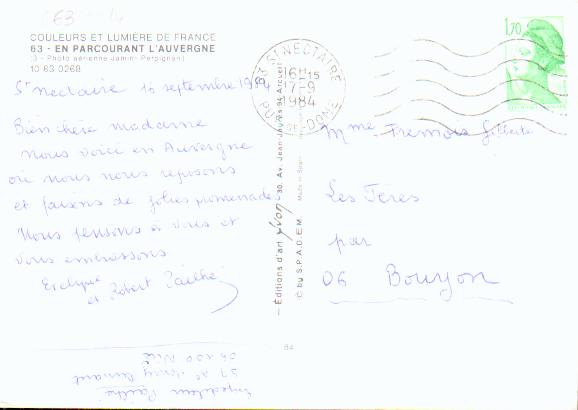 COULEURS ET LUMIÈRE DE FRANCE
63 - EN PARCOURANT L'AUVERGNE
(3 - Photo aérienne Jamin- Perpignan)
10 63 0268
St Nectaire 16 septembre 1984
Bien chère madame
nous voici en Auvergne
où nous nous reposons
et faisons de jolies promenades
Nous pensons à vous et
vous embrassons
Evelyne
et Robert
63 ST NECTAIRE
16H15
17-9
1984
PUY-DE-DOME
1,70
Mme Fremois Gilberte
Les Ferres
par
06 Bouyon
— Éditions d'art Yvon, 30, Av. Jean Jaurès 94 Arcueil
© by S.P.A.D.E.M.
Made in
64
Expéditeur
06100 Nice